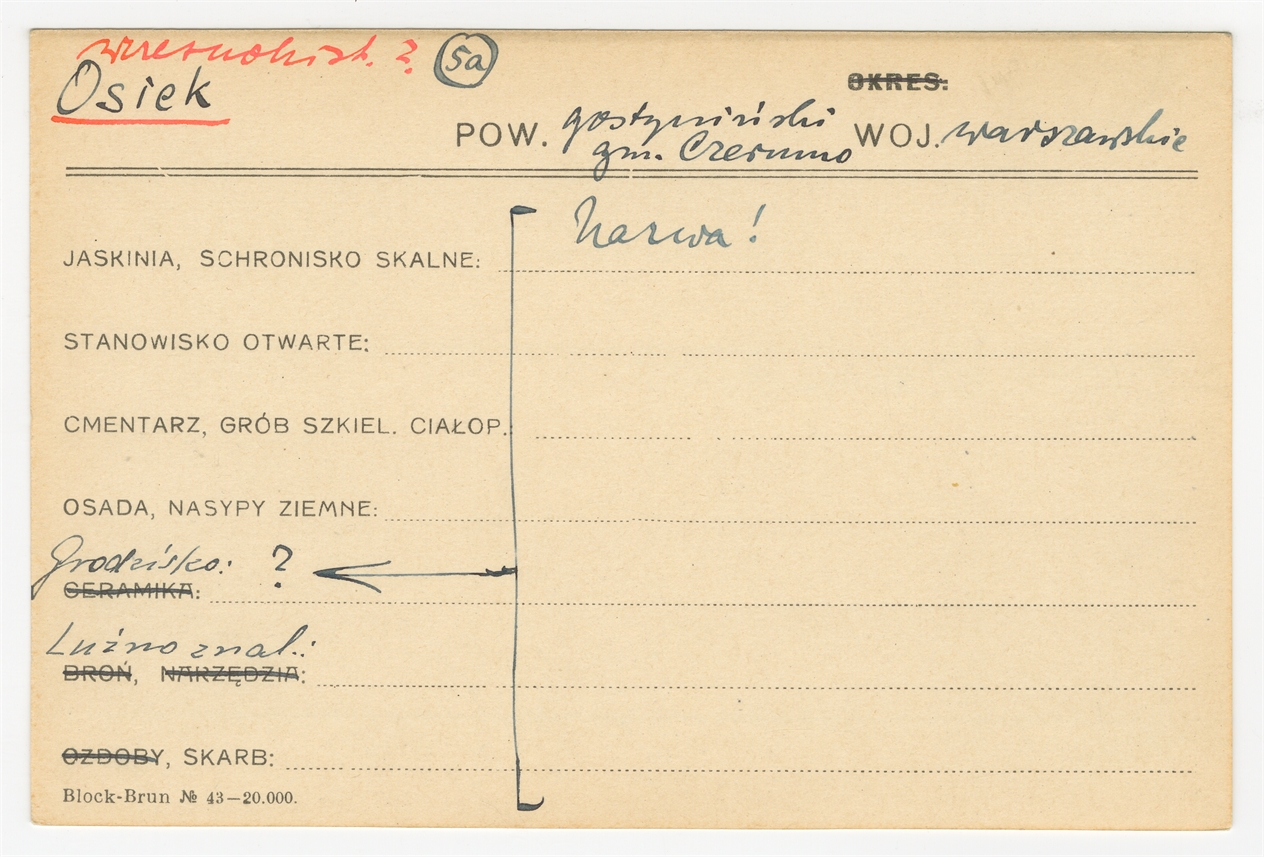 wczesnohist. ? 5a
Osiek
OKRES:
POW. gostyniński WOJ. warszawskie
gm. Czermno
Nazwa!
JASKINIA, SCHRONISKO SKALNE:
STANOWISKO OTWARTE:
CMENTARZ, GRÓB SZKIEL. CIAŁOP.:
OSADA, NASYPY ZIEMNE:
Grodzisko: ?
CERAMIKA:
Luźno znal.:
BROŃ, NARZĘDZIA:
OZDOBY, SKARB:
Block-Brun № 43—20.000.